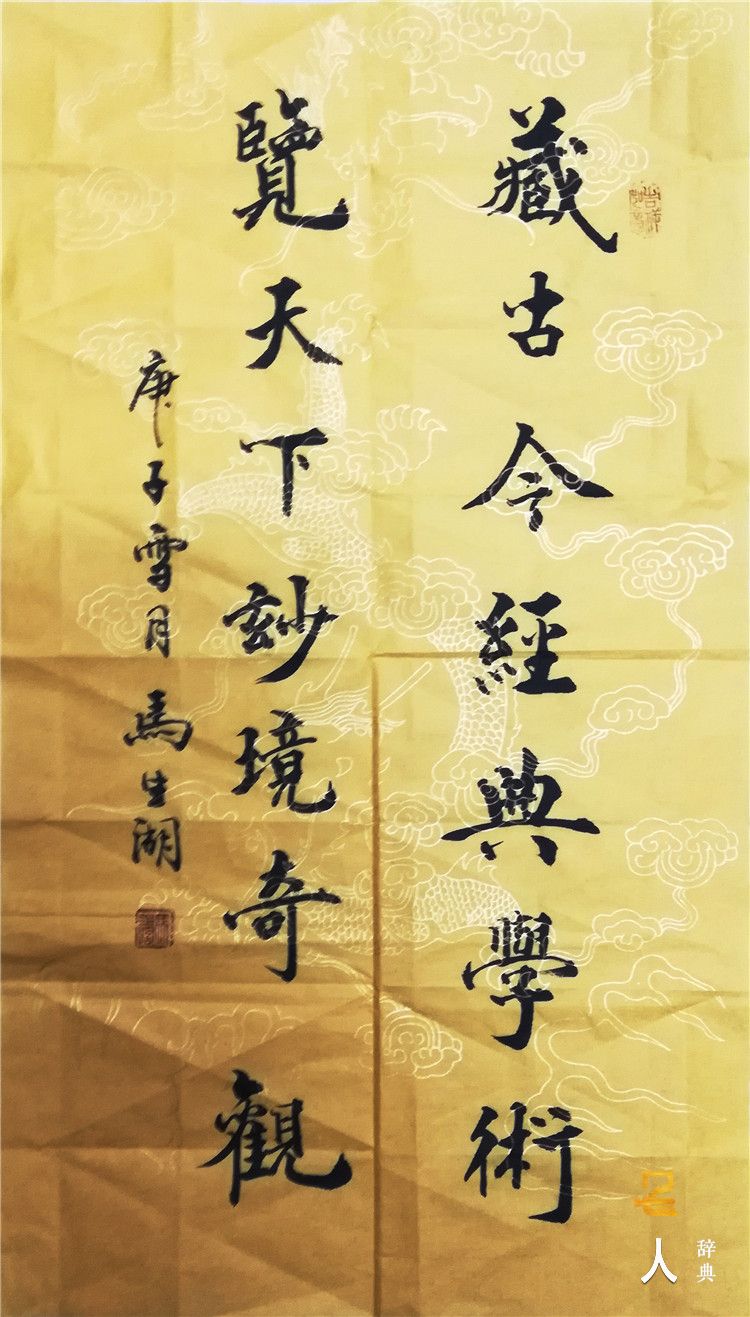 藏古今經典學術
覽天下玅境奇觀
庚子雪月馬生湖
名人
辞典